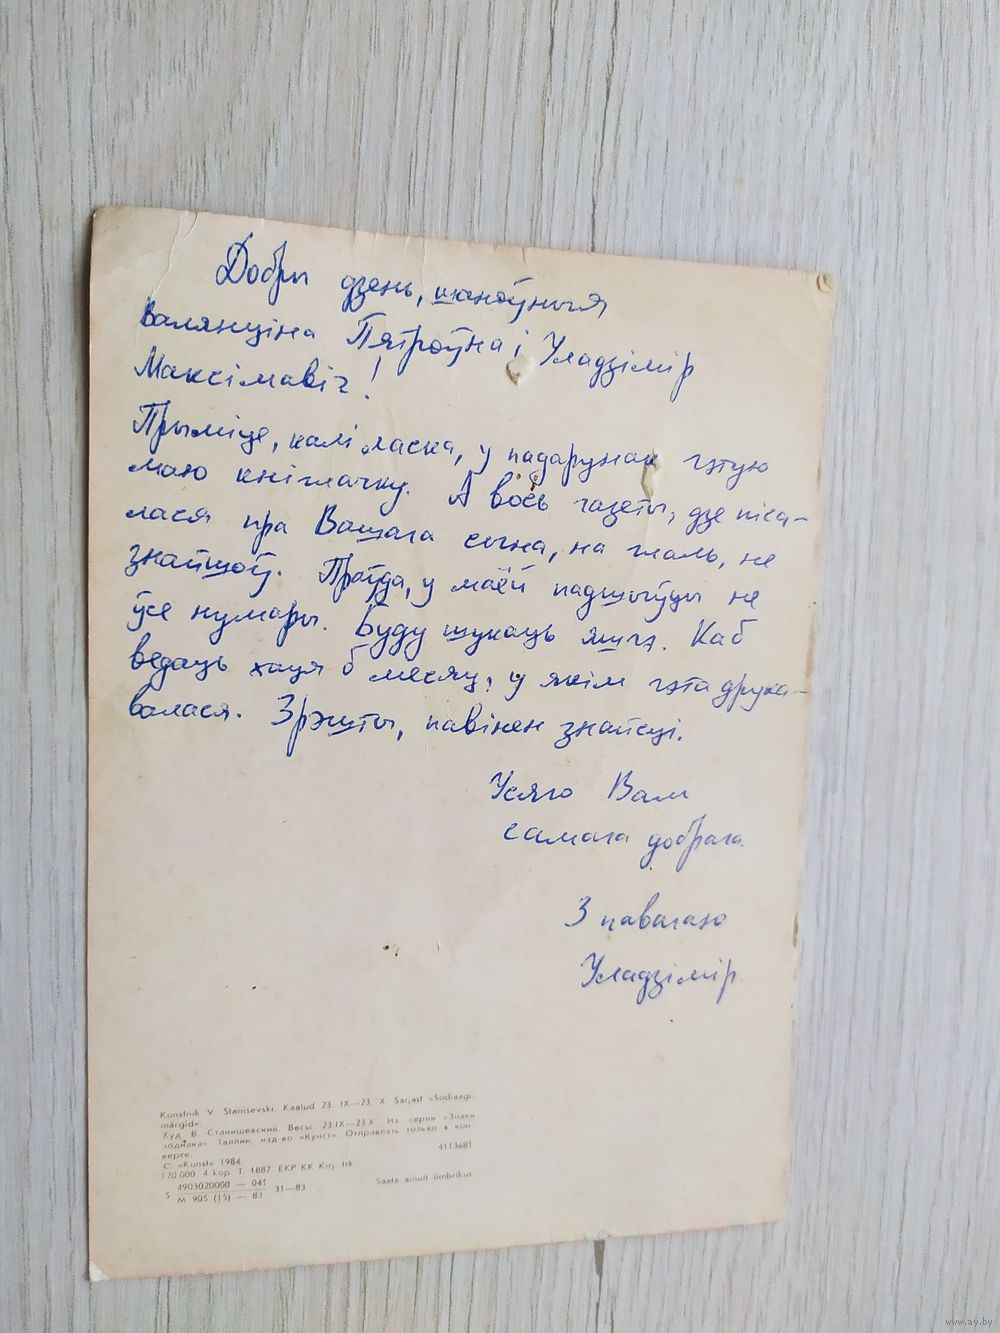 Добры дзень, шаноўныя
Валянціна Пятроўна і Уладзімір
Максімавіч!
Прыміце, калі ласка, у падарунак гэтую
маю кніжачку. А вось газеты, дзе піса-
лася пра Вашага сына, на жаль, не
знайшоў. Праўда, у маёй падшыўцы не
ўсе нумары. Буду шукаць яшчэ. Каб
ведаць хаця б месяц, у якім гэта друка-
валася. Зрэшты, павінен знайсці.
Усяго Вам
самага добрага.
З павагаю
Уладзімір.
Kunstnik V. Staniševski. Kaalud 23. IX—23. X. Sarjast «Sodiaagi-
märgid».
Худ. В. Станишевский. Весы. 23.IX—23.X. Из серии «Знаки
зодиака». Таллин, изд-во «Кунст». Отправлять только в кон-
верте.
© «Kunst» 1984. 4113681
120 000. 4 kop. T. 1887. EKP KK Kirj. trk.
S 4903020000 — 041
M 905 (15) — 83 31—83 Saata ainult ümbrikus
www.ay.by